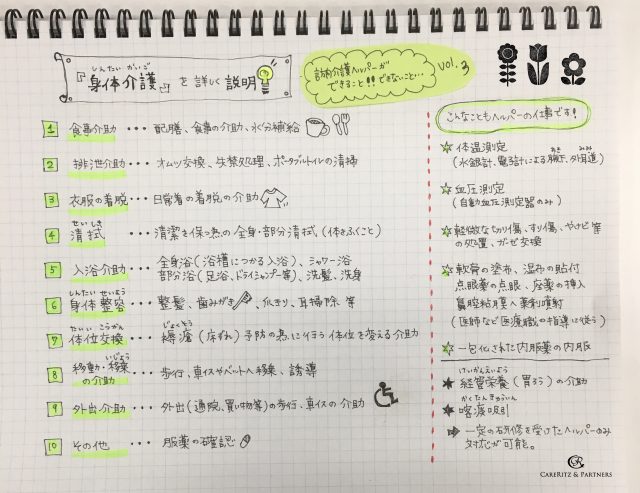 しんたい かいご
『身体介護』を詳しく説明
訪問介護ヘルパーが
できること!!できないこと…
vol.3
1 食事介助 ・・・ 配膳、食事の介助、水分補給
2 排泄介助 ・・・ オムツ交換、失禁処理、ポータブルトイレの清掃
3 衣服の着脱 ・・・ 日常着の着脱の介助
せいしき
4 清拭 ・・・ 清潔を保つ為の全身・部分清拭、(体をふくこと)
5 入浴介助 ・・・ 全身浴(浴槽につかる入浴)、シャワー浴
部分浴(足浴、ドライシャンプー等)、洗髪、洗身
しんたい せいよう
6 身体整容 ・・・ 整髪、歯みがき、爪きり、耳掃除 等
たいい こうかん
じょくそう
7 体位交換 ・・・ 褥瘡(床ずれ)予防の為に行う体位を変える介助
いじょう
8 移動・移乗の介助 ・・・ 歩行、車イスやベットへ移乗、誘導
9 外出介助 ・・・ 外出(通院、買い物等)の歩行、車イスの介助
10 その他 ・・・ 服薬の確認
こんなこともヘルパーの仕事です!
☆ 体温測定
わき みみ
(水銀計、電子計による腋下、外耳道)
☆ 血圧測定
(自動血圧測定器のみ)
☆ 軽微な切り傷、すり傷、やけど等
の処置、ガーゼ交換
☆ 軟骨の塗布、湿布の貼付
点眼薬の点眼、座薬の挿入
鼻腔粘膜へ薬剤噴射
(医師など医療職の指導に従う)
☆ 一包化された内服薬の内服
けいかんえいよう
★ 経管栄養(胃ろう)の介助
かくたんきゅういん
★ 喀痰吸引
⇒ 一定の研修を受けたヘルパーのみ
対応が可能。
CARERITZ & PARTNERS